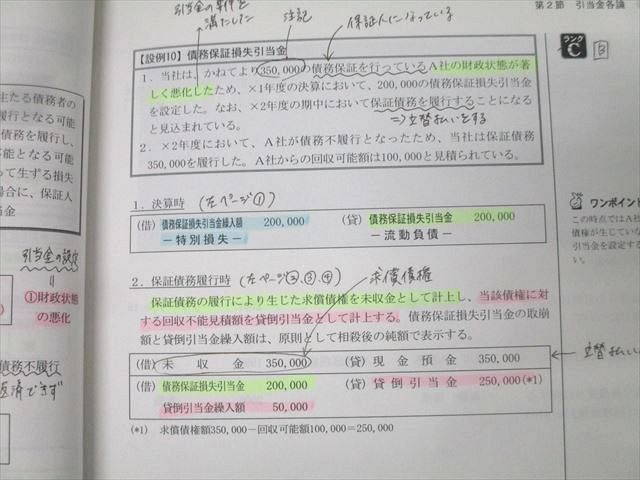 第2節 引当金各論
引当金の要件を
満たした
注記
保証人になっている
ランク
C
B
【設例10】債務保証損失引当金
1.当社は、かねてより350,000の債務保証を行っているA社の財政状態が著
しく悪化したため、×1年度の決算において、200,000の債務保証損失引当金
を設定した。なお、×2年度の期中において保証債務を履行することになる
と見込まれている。
⇒立替払いをする
2.×2年度において、A社が債務不履行となったため、当社は保証債務
350,000を履行した。A社からの回収可能額は100,000と見積られている。
1.決算時 (左ページ①)
(借) 債務保証損失引当金繰入額 200,000 (貸) 債務保証損失引当金 200,000
-特別損失- -流動負債-
2.保証債務履行時 (左ページ②、③、④)
求償債権
保証債務の履行により生じた求償債権を未収金として計上し、当該債権に対
する回収不能見積額を貸倒引当金として計上する。債務保証損失引当金の取崩
額と貸倒引当金繰入額は、原則として相殺後の純額で表示する。
(借) 未収金 350,000 (貸) 現金預金 350,000
立替払い
(借) 債務保証損失引当金 200,000 (貸) 貸倒引当金 250,000(*1)
貸倒引当金繰入額 50,000
(*1) 求償債権額350,000-回収可能額100,000=250,000
ワンポイント
この時点ではA社
債権が生じてい
引当金を設定す
い。
主たる債務者の
履行となる可能
債務を履行し、
不能となる可能
って生ずる損失
場合に、保証人
当金
引当金の設定
①財政状態
の悪化
債務不履行
返済できず